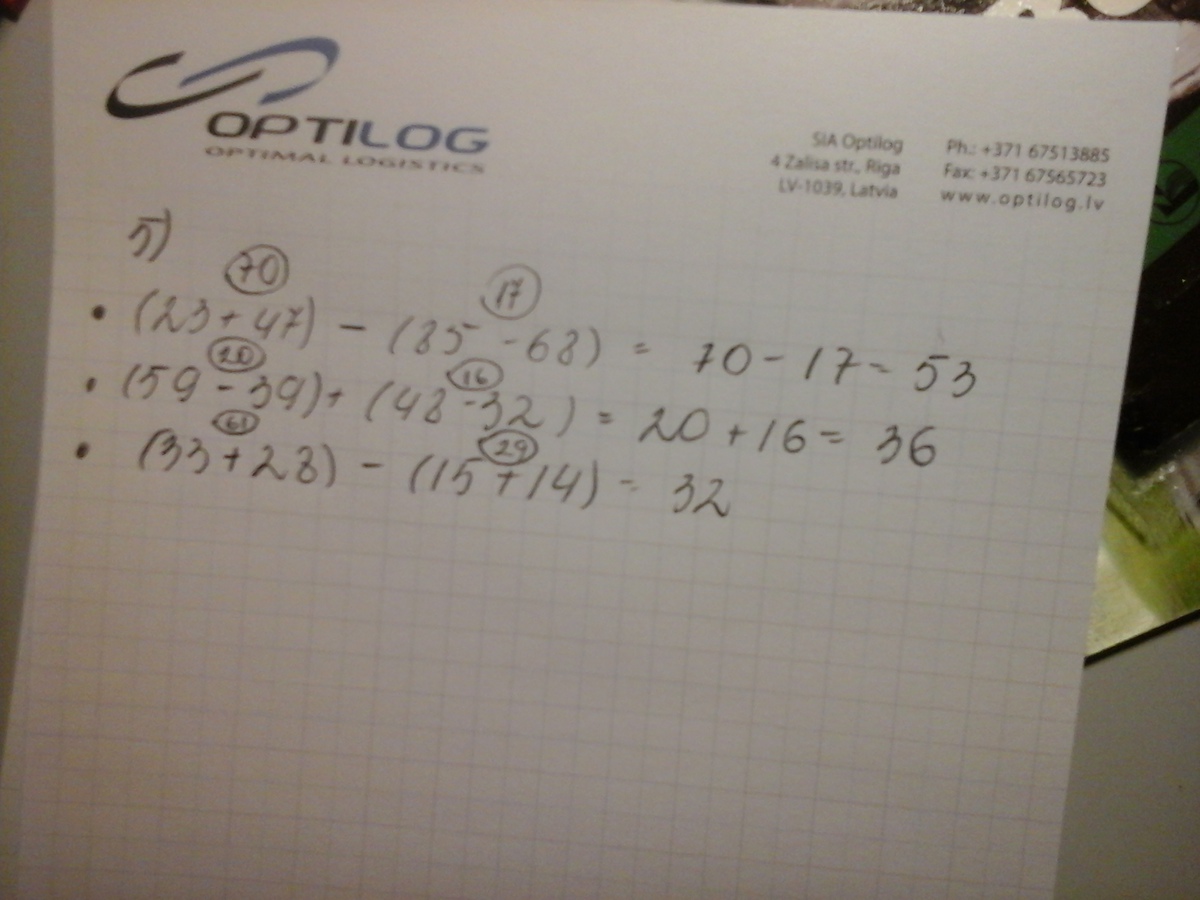 OPTILOG
OPTIMAL LOGISTICS
SIA Optilog
4 Zalisa str., Riga
LV-1039, Latvia
Ph.: +371 67513885
Fax: +371 67565723
www.optilog.lv
5)
70 17
• (23+47) - (85-68) = 70-17= 53
20 16
• (59-39)+(48-32) = 20+16= 36
61 29
• (33+28) - (15+14) = 32